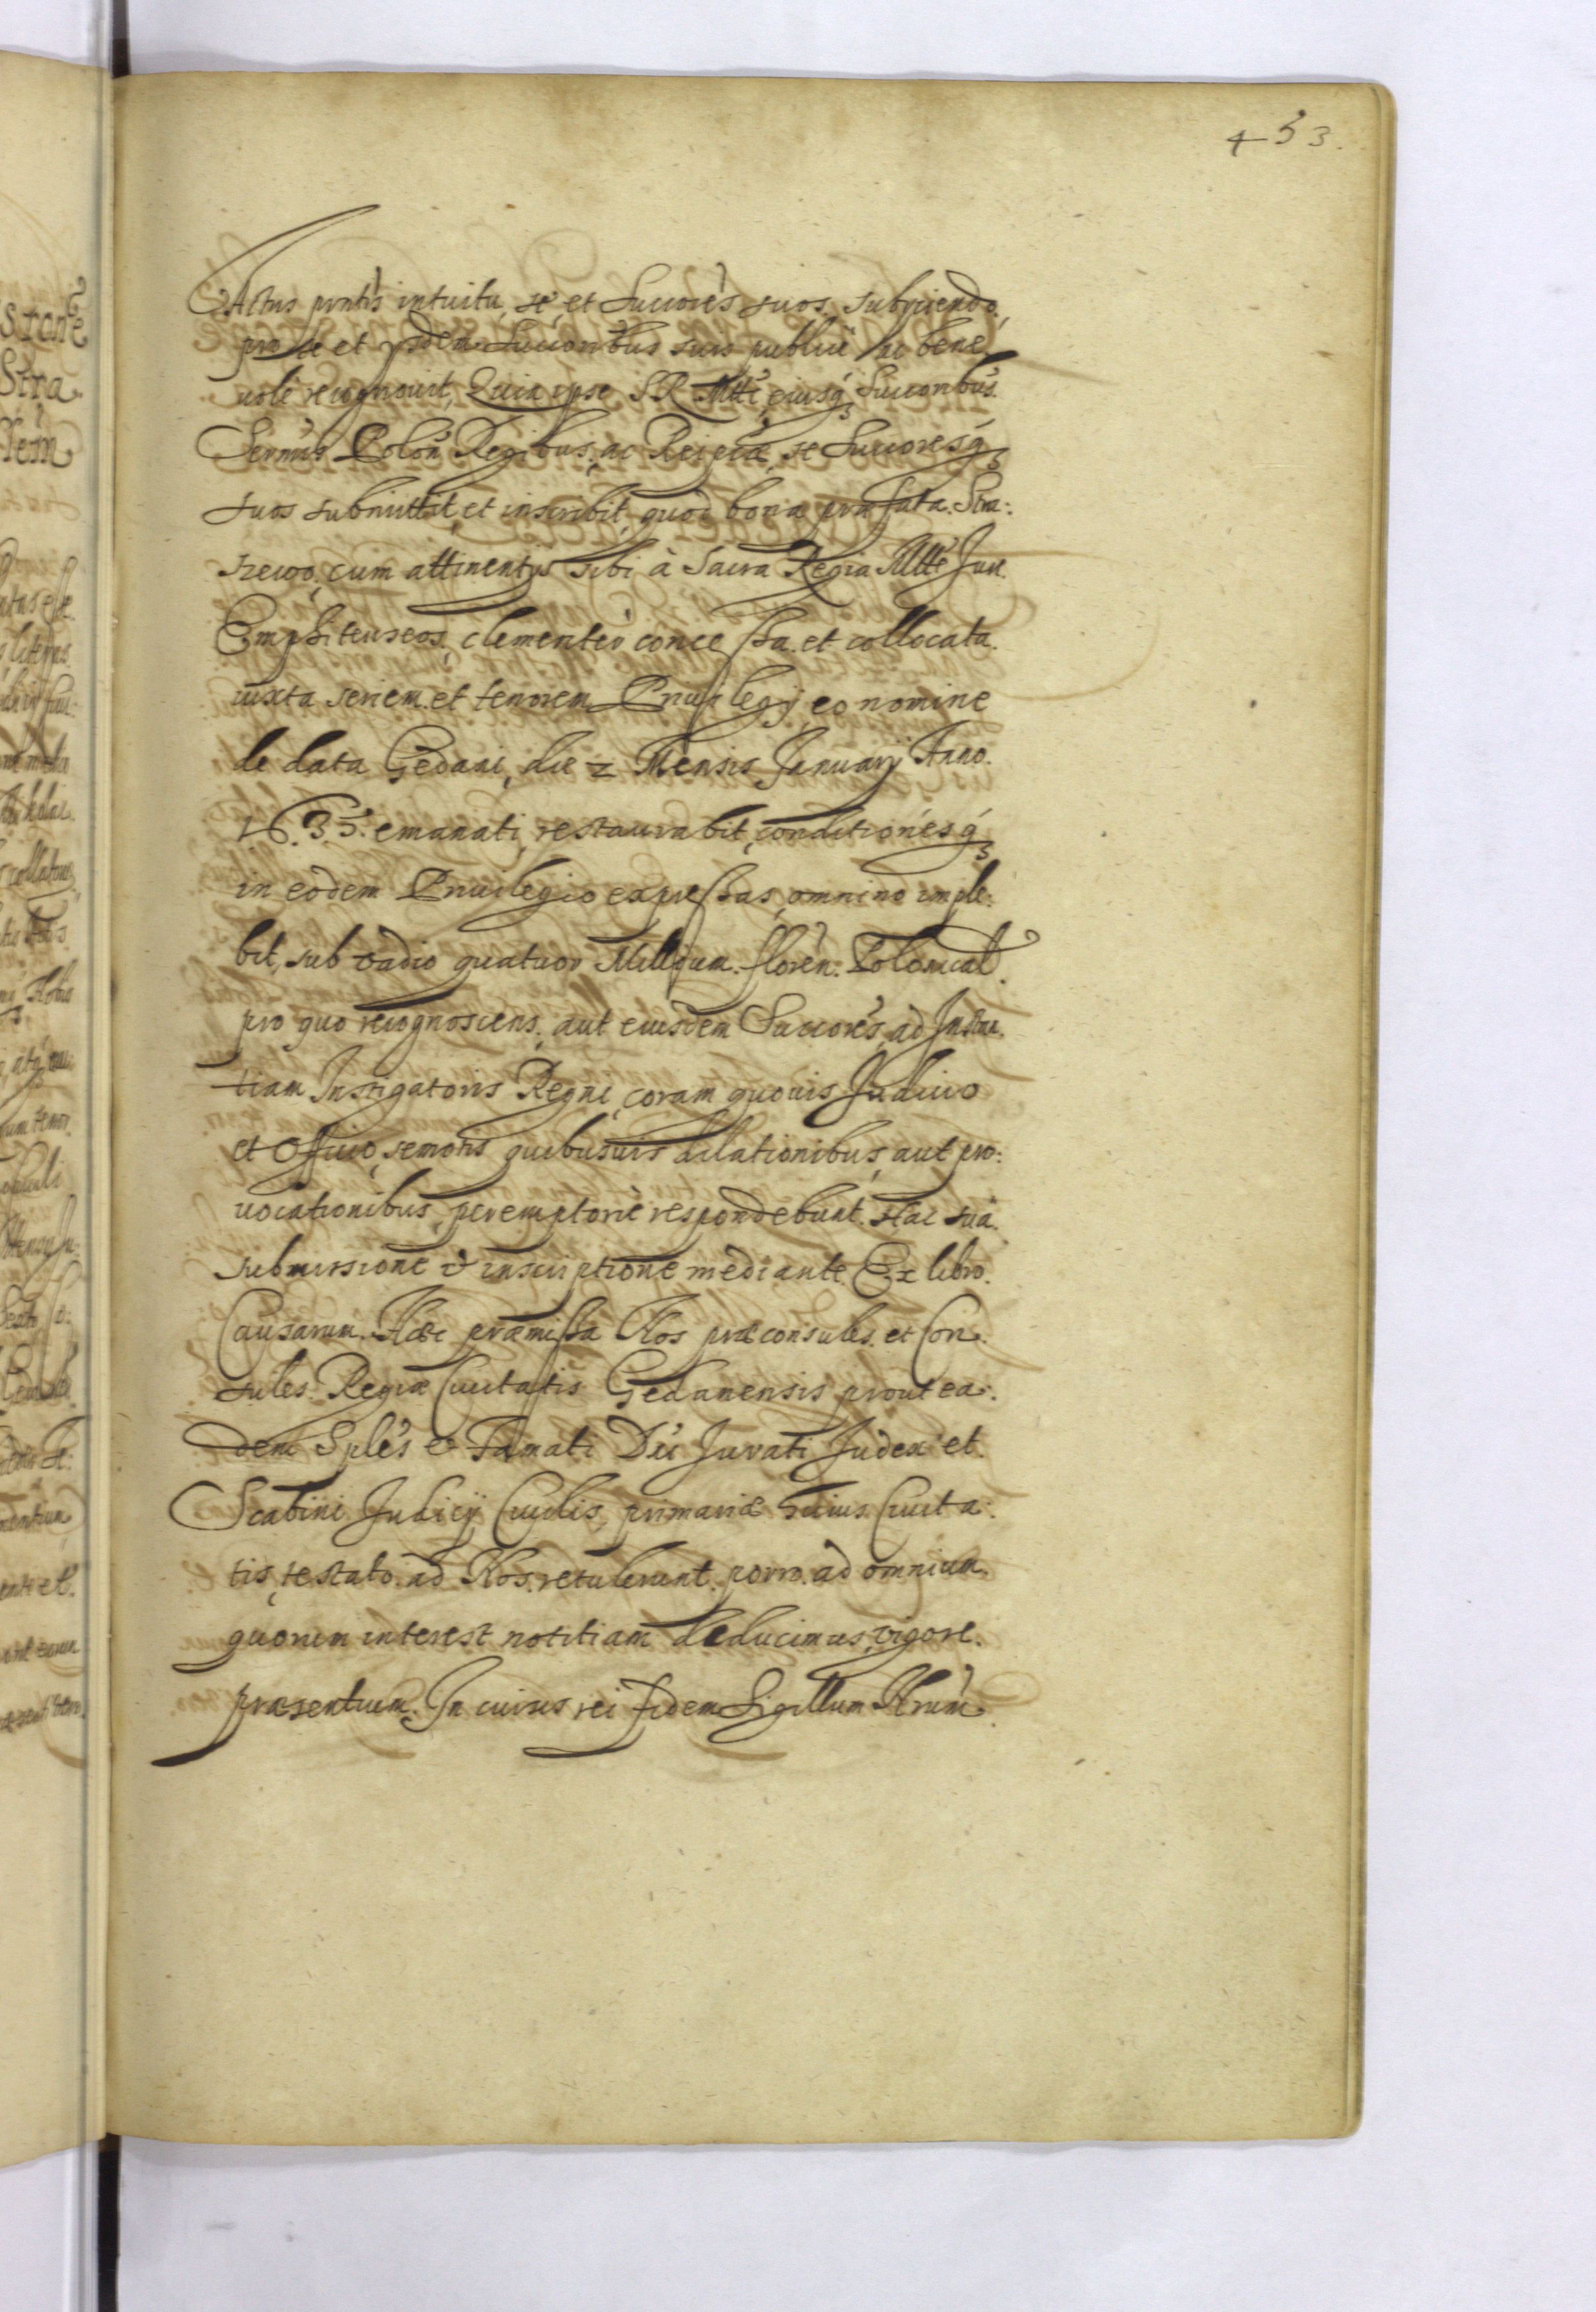 453.
Actus pntis intuitu, se, et Succores suos subijciendo,
pro se et ijsdem Succoribus suis publicè ac bene
uolè recognouit, Quia ipse S R Mtti, eiusq3 Succoribus
Sermis Polon Regibus, ac Reipcæ, se Succoresq3
suos submittit, et inscribit, quod bona præfata Stra:
szewo, cum attinentijs sibi à Sacra Regia Mtte Jure
Emphiteuseos, clementèr concessa et collocata
iuxta seriem et tenorem Priuilegij, eo nomine
de data Gedani, die 2 Mensis Januarij Anno
1635. emanati, restaurabit, conditionesq3
in eodem Priuilegio expressas, omnino imple:
bit, sub vadio quatuor Millium floren: Polonical
pro quo recognoscens, aut eiusdem Succores, ad Instan
tiam Instigatoris Regni, coram quouis Judicio
et Officio, semotis quibusuis dilationibus, aut pro:
uocationibus, peremptoriè respondebunt. Hac sua
submissione & inscriptione mediante. Ex libro
Causarum. Hæc præmissa Nos præconsules et Con
sules Regiæ Ciuitatis Gedanensis prout ea:
dem Sples & Famati Dni Jurati Judex et
Scabini Judicij Ciuilis, primariæ huius Ciuita:
tis, testato ad Nos retulerunt, porro ad omnium
quorum interest notitiam deducimus, vigore
præsentium. In cuius rei fidem Sigillum Nrum